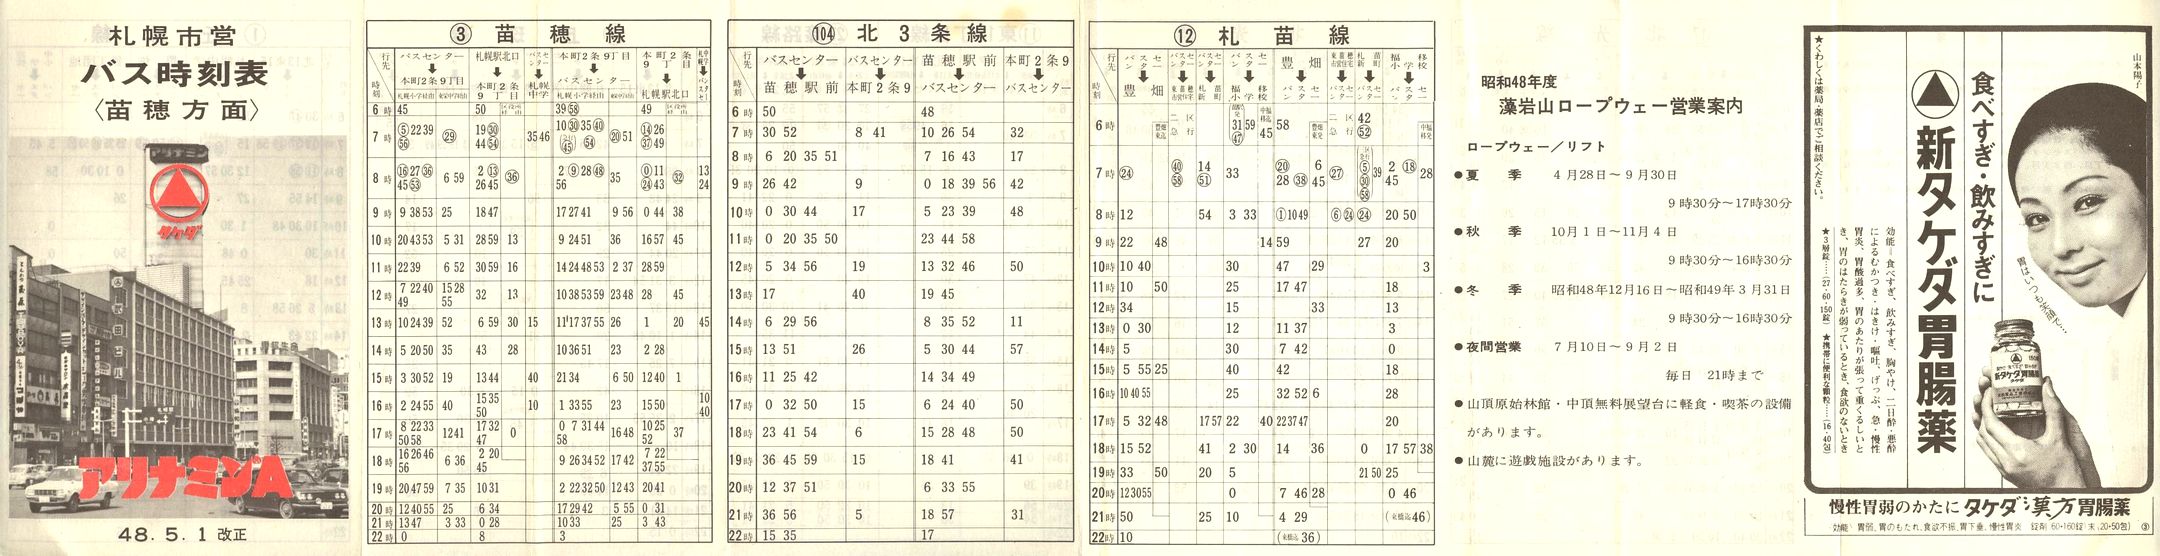 札幌市営
バス時刻表
〈苗穂方面〉
アリナミン
タケダ
アリナミンA
48.5.1 改正
③ 苗穂線
行先 時刻
バスセンター ↓ 本町2条9丁目
札幌駅北口 ↓ 本町2条9丁目
バスセンター ↓ 札幌中学
本町2条9丁目 ↓ バスセンター
本町2条9丁目 ↓ 札幌駅北口
6時 45 50 39 58 49
9時 9 38 53 25 18 47 17 27 41 9 56 0 44 38
10時 20 43 53 5 31 28 59 13 9 24 51 36 16 57 45
11時 22 39 6 52 30 59 16 14 24 48 53 2 37 28 59
12時 7 22 40 49 15 28 55 32 13 10 38 53 59 23 48 28 45
13時 10 24 39 52 6 59 30 15 11 17 37 55 26 1 20 45
14時 5 20 50 35 43 28 10 36 51 23 2 28
15時 3 30 52 19 13 44 40 21 34 6 50 12 40 1
16時 2 24 55 40 15 35 50 10 1 33 55 23 15 50 10 40
17時 8 22 33 50 58 12 41 17 32 47 0 0 7 31 44 58 16 48 10 25 52 37
18時 16 26 46 56 6 36 2 20 45 9 26 34 52 17 42 7 22 37 55
19時 20 47 59 7 35 10 31 2 22 32 50 12 43 20 41
20時 12 40 55 25 6 34 17 29 42 5 55 0 31
21時 13 47 3 33 0 28 10 33 25 3 43
22時 0 8 3
104 北3条線
行先 時刻
バスセンター ↓ 苗穂駅前
バスセンター ↓ 本町2条9
苗穂駅前 ↓ バスセンター
本町2条9 ↓ バスセンター
6時 50 48
7時 30 52 8 41 10 26 54 32
8時 6 20 35 51 7 16 43 17
9時 26 42 9 0 18 39 56 42
10時 0 30 44 17 5 23 39 48
11時 0 20 35 50 23 44 58
12時 5 34 56 19 13 32 46 50
13時 17 40 19 45
14時 6 29 56 8 35 52 11
15時 13 51 26 5 30 44 57
16時 11 25 42 14 34 49
17時 0 32 50 15 6 24 40 50
18時 23 41 54 6 15 28 48 50
19時 36 45 59 15 18 41 41
20時 12 37 51 6 33 55
21時 36 56 5 18 57 31
22時 15 35 17
⑫ 札苗線
行先 時刻
8時 12 54 3 33 ① 10 49 ⑥ ㉔ ㉔ 20 50
9時 22 48 14 59 27 20
10時 10 40 30 47 29 3
11時 10 50 25 17 47 18
12時 34 15 33 13
13時 0 30 12 11 37 3
14時 5 30 7 42 0
15時 5 55 25 40 42 18
16時 10 40 55 25 32 52 6 28
17時 5 32 48 17 57 22 40 22 37 47 20
18時 15 52 41 2 30 14 36 0 17 57 38
19時 33 50 20 5 21 50 25
20時 12 30 55 0 7 46 28 0 46
21時 50 25 10 4 29 (東橋迄46)
22時 10 (東橋迄36)
昭和48年度
藻岩山ロープウェー営業案内
ロープウェー/リフト
●夏 季 4月28日～9月30日
9時30分～17時30分
●秋 季 10月1日～11月4日
9時30分～16時30分
●冬 季 昭和48年12月16日～昭和49年3月31日
9時30分～16時30分
●夜間営業 7月10日～9月2日
毎日 21時まで
●山頂原始林館・中頂無料展望台に軽食・喫茶の設備
があります。
●山麓に遊戯施設があります。
山本陽子
食べすぎ・飲みすぎに
新タケダ胃腸薬
胃はいつも笑顔で…
効能＝食べすぎ、飲みすぎ、胸やけ、二日酔・悪酔
によるむかつき・はきけ・嘔吐、げっぷ、急・慢性
胃炎、胃酸過多、胃のあたりが張って重くるしいと
き、胃のはたらきが弱っているとき、食欲のないとき
★3層錠……(27・60・150錠) ★携帯に便利な顆粒……(16・40包)
★くわしくは薬局・薬店でご相談ください。
新タケダ胃腸薬
慢性胃弱のかたに タケダ漢方胃腸薬
効能 胃弱、胃のもたれ、食欲不振、胃下垂、慢性胃炎 錠剤(60・160錠)末(20・50包)